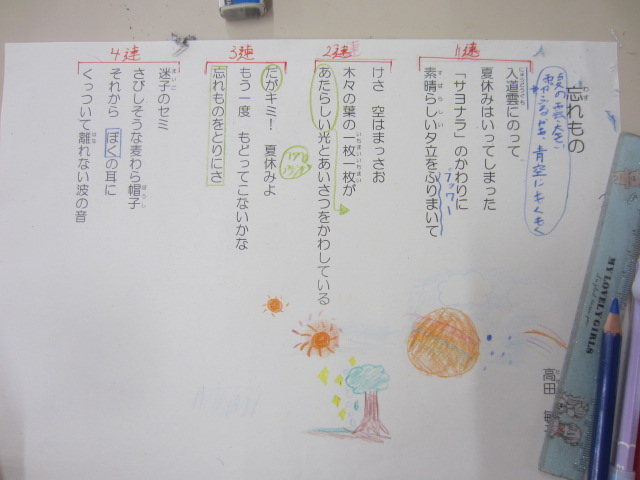 忘れもの
高田 敏
入道雲にのって
夏休みはいってしまった
「サヨナラ」のかわりに
素晴らしい夕立をふりまいて
けさ 空はまっさお
木々の葉の一枚一枚が
あたらしい光とあいさつをかわしている
だがキミ! 夏休みよ
もう一度 もどってこないかな
忘れものをとりにさ
迷子のセミ
さびしそうな麦わら帽子
それから ぼくの耳に
くっついて離れない波の音
1連
2連
3連
4連
青空にもくもく
MY LOVELY GIRLS